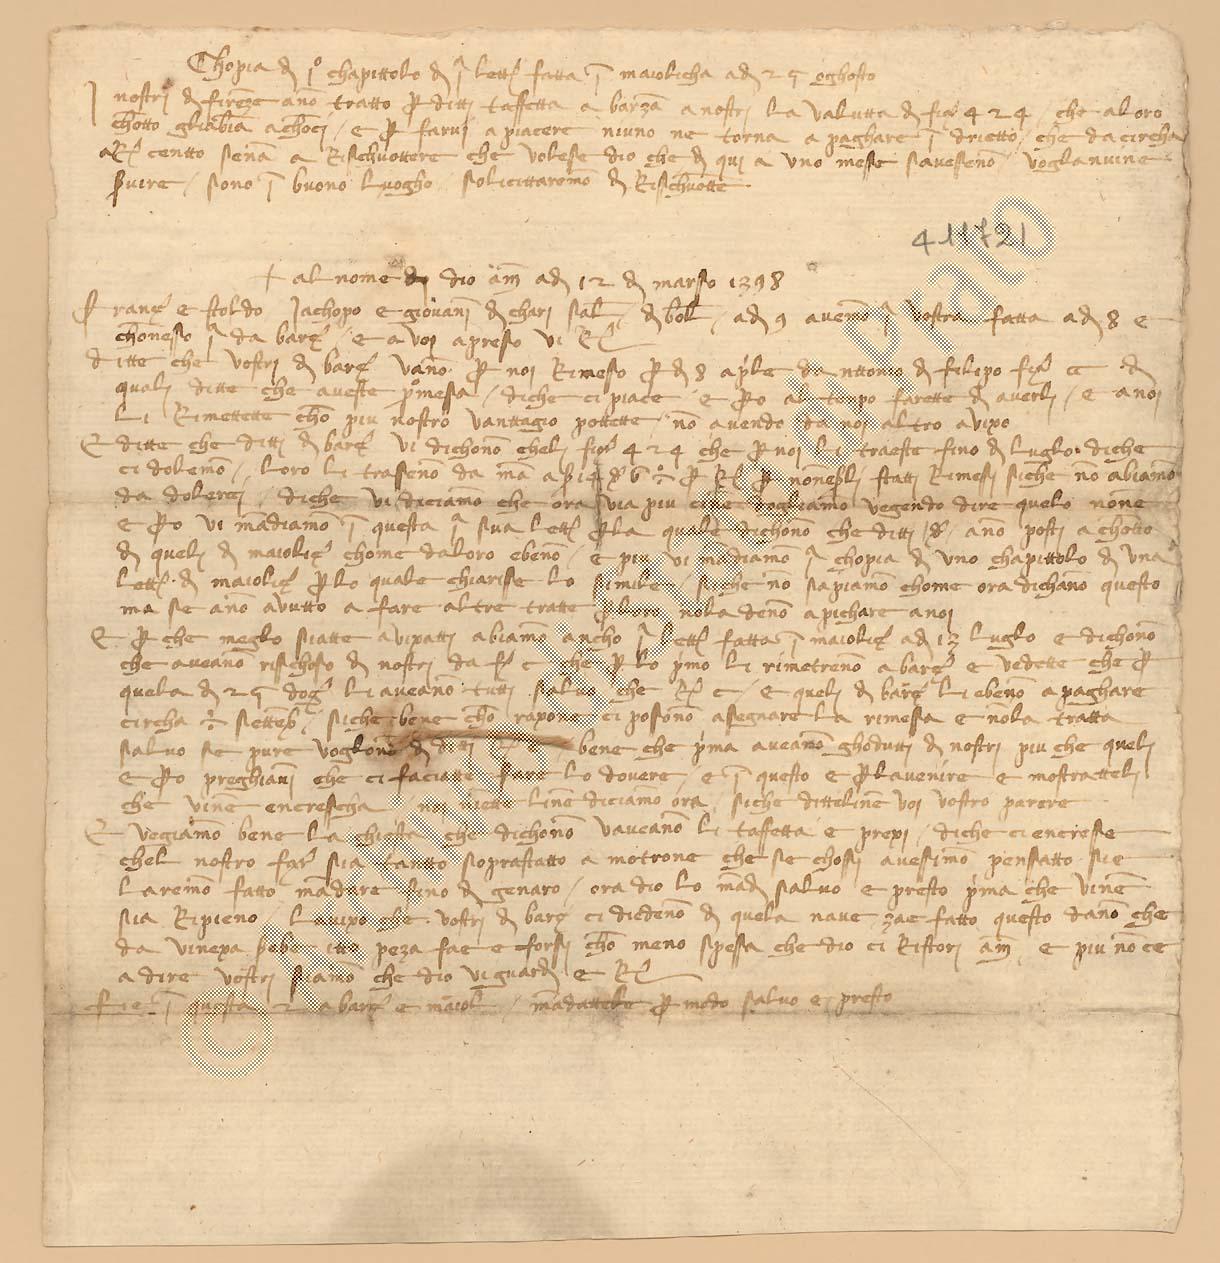 Chopia di 1° chapittolo di 1ª lettª fatta in maiolicha adi 25 oghosto
I nostri di firenze ano tratto per ditti taffetta a barzª a nostri la valutta di fior 424 che al oro
chotto gliabian achonci / e per farvi a piacere niuno ne torna a paghare in drietto che da circha
centto sena a Rischuottere che volese dio che di qui a uno messe savesseno voglanvine
servire / sono in buono luogho solicittaremo di Rischuotte
411721
+ al nome di dio am adi 12 di marso 1398
Francº e stoldo Jachopo e giovani di chari sal di bol / adi 9 avemo 1ª vostra fatta adi 8 e
chonesso 1ª da barzª / e a voi apresso vi R
ditte che vostri di barzª vano per noi Rimesso per di 8 aprle da nttonio di filipo fior cc di
quali ditte che aveste promessa / diche ci piace e pero al tenpo farette di averli / e a noi
li Rimettette cho piu nostro vanttagio pottette no avendo da noi altro aviso
E ditte che ditti di barzª vi dichono cheli fior 424 che per noi li traeste fino di luglo diche
ci dolemo / loro li trasseno da stati Rimessi siche no abiamo
da dolerci / diche vi diciamo che ora via piu che vogliamo vegendo dire quelo none
e pero vi mandiamo in questa 1ª sua lettª per la quale dichono che ditti ano posti a chotto
di queli di maiolicª chome daloro ebeno / e piu vi mandiamo 1ª chopia di uno chapittolo di una
lettª di maiolicª per lo quale chiarisse lo simile / siche no sapiamo chome ora dichano questo
ma se ano avutto a fare altre tratte per loro nola deno apichare a noi
E per che meglo siatte avisatti abiamo ancho 1ª lettª fatta in maiolicª adi 13 luglo e dichono
che aveano rischosso di nostri da c che per lo primo li rimetreno a barzª e vedette che per
quela di 25 dogº li aveano tutti salvo che c / e queli di barzª li ebeno a paghare
circha settenb / siche bene cho rapone ci posono asegnare la rimessa e nola tratta
salvo se pure voglono di ditti bene che prima aveano ghodutti di nostri piu che queli
e pero preghiani che ci faciatte fare lo dovere / e in questo e per lavenire e mostratteli
che vine encrescha / noi niette line diciamo ora / siche dittelinE voi vostro parere
E vegiamo bene la chiesta che dichono vaveano li taffetta e prexi / diche ci encresse
chel nostro far sia tantto soprastatto a motrone che se chossi avessimo pensatto sie
laremo fatto mandare fino di genaro / ora dio lo mandi salvo e presto prima che vine
sia Ripieno / lavixo che vostri di barzª ci diedeno di quela nave zae fatto questo dano che
da vinexa pebe peza fae e forssi cho meno spessa che dio ci Ristori am e piu no ce
a dire vostri siamo che dio vi guardi e R
Fie in questa 2 a barzª e maiol / mandattele per modo salvo e presto
© Archivio di Stato di Prato